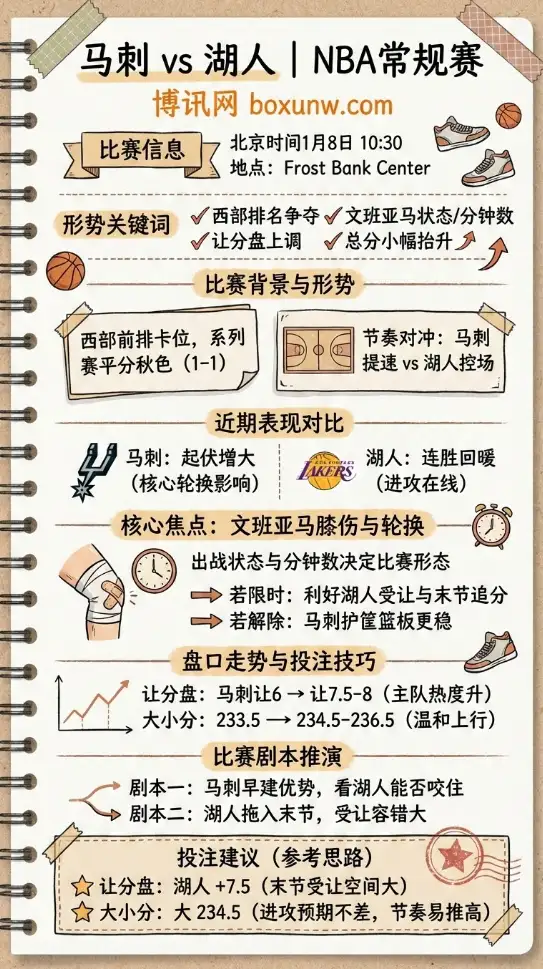 马刺 vs 湖人｜NBA常规赛
博讯网 boxunw.com
比赛信息
北京时间1月8日 10:30
地点：Frost Bank Center
形势关键词
西部排名争夺
文班亚马状态/分钟数
让分盘上调
总分小幅抬升
比赛背景与形势
西部前排卡位，系列
赛平分秋色（1-1）
节奏对冲：马刺
提速 vs 湖人控场
近期表现对比
马刺：起伏增大
（核心轮换影响）
LAKERS
湖人：连胜回暖
（进攻在线）
核心焦点：文班亚马膝伤与轮换
出战状态与分钟数决定比赛形态
→ 若限时：利好湖人受让与末节追分
→ 若解除：马刺护筐篮板更稳
盘口走势与投注技巧
让分盘：马刺让6 → 让7.5-8（主队热度升）
大小分：233.5 → 234.5-236.5（温和上行）
比赛剧本推演
剧本一：马刺早建优势，看湖人能否咬住
剧本二：湖人拖入末节，受让容错大
投注建议（参考思路）
让分盘：湖人 +7.5（末节受让空间大）
大小分：大 234.5（进攻预期不差，节奏易推高）